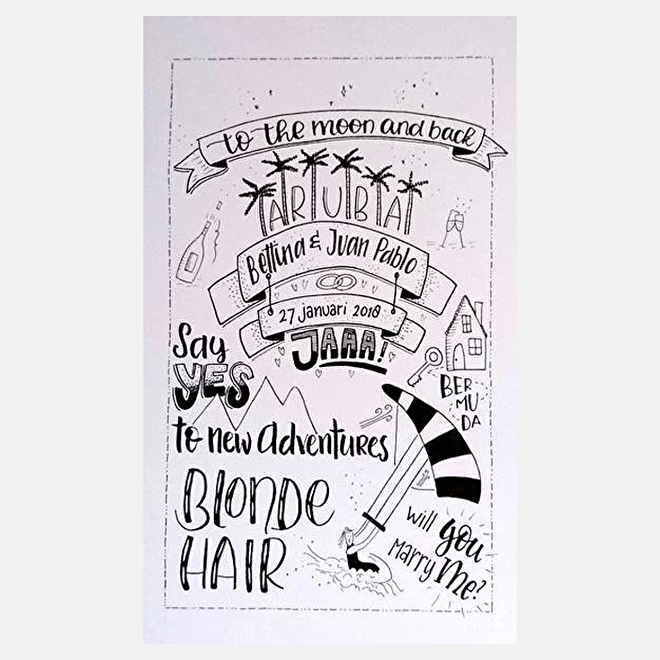 to the moon and back
ARUBA
Bettina & Juan Pablo
27 januari 2018
JAAA!
Say
YES
to new Adventures
BERMUDA
BLONDE
HAIR
will you
Marry Me?